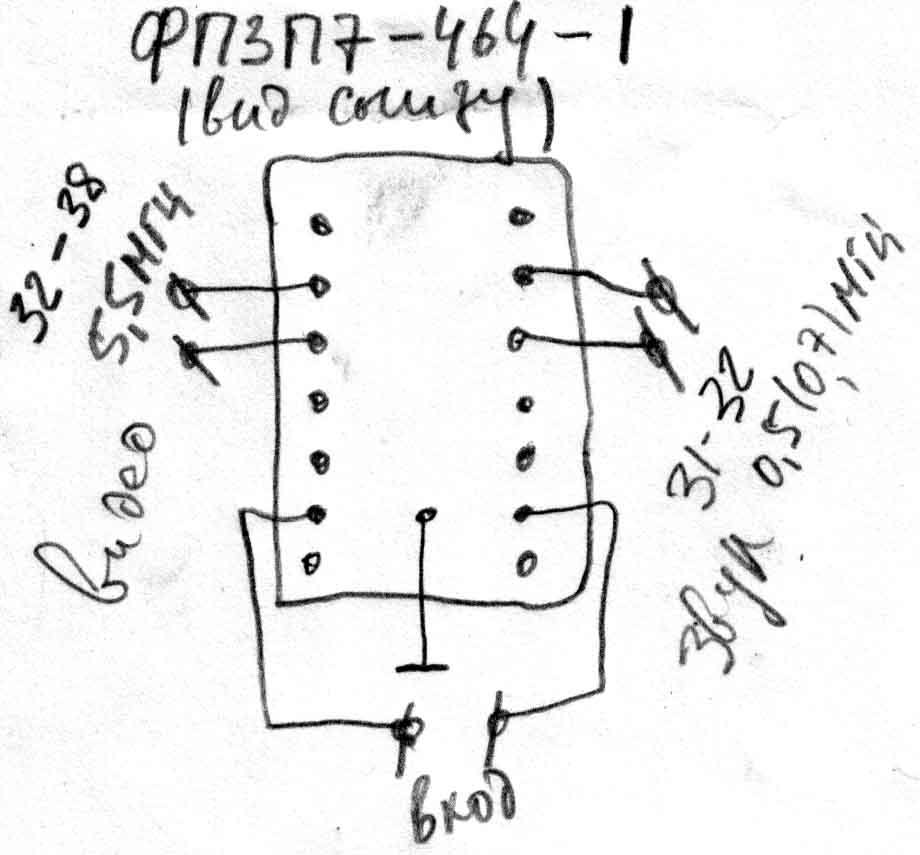 ФПЗП7-464-1
(вид снизу)
32-38
5,5 МГц
видео
31-32
0,5(0,7) МГц
звук
вход